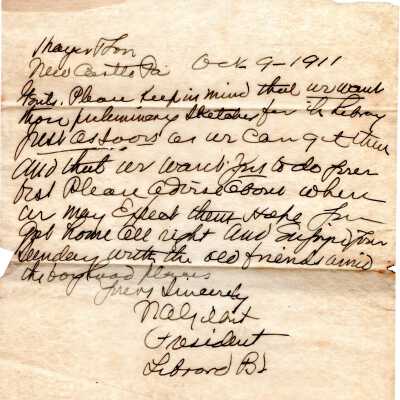 Thayer & Son
New Castle Pa Oct 9-1911
Gents. Please keep in mind that we want
more preliminary sketches for the Library
just as soon as we can get them
and that we want you to do your
best Please advise about when
we may Expect them Hope you
got home all right and Enjoyed your
Sunday with the old friends amid
the boyhood places
yours Sincerely
President
Library Bd